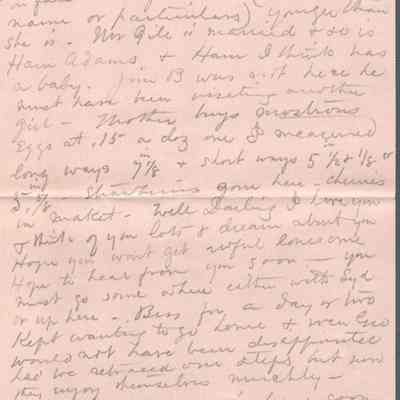 name or particulars) younger than
she is. Mr Gile is married & so is
Ham Adams & Ham I think has
a baby. Jim B was not here he
must have been visiting another
girl - Mother buys monstrous
Eggs at .15 a doz one I measured
long ways 7 in/8 & short ways 5 1/2 & 1/8 or
5 in 5/8 - Strawberries gone here - cherries
in market - Well Darling I love you
& think of you lots & dream about you
Hope you wont get awful lonesome
Hope to hear from you soon - you
must go some where either with Syd
or up here - Bess for a day or two
Kept wanting to go home & even Geo
would not have been disappointed
had we retraced our steps but now
they enjoy themselves muchly -
soon